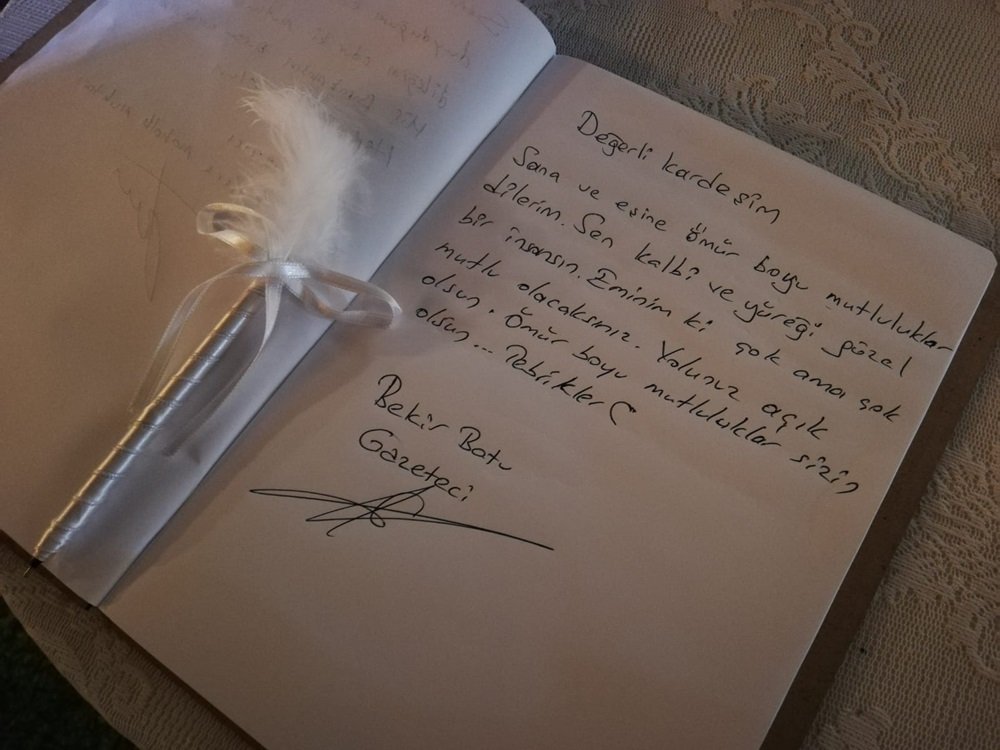 Değerli kardeşim
Sana ve eşine ömür boyu mutluluklar
dilerim. Sen kalbi ve yüreği güzel
bir insansın. Eminim ki çok ama çok
mutlu olacaksınız. Yolunuz açık
olsun. Ömür boyu mutluluklar sizin
olsun... Tebrikler (
Bekir Batu
Gazeteci